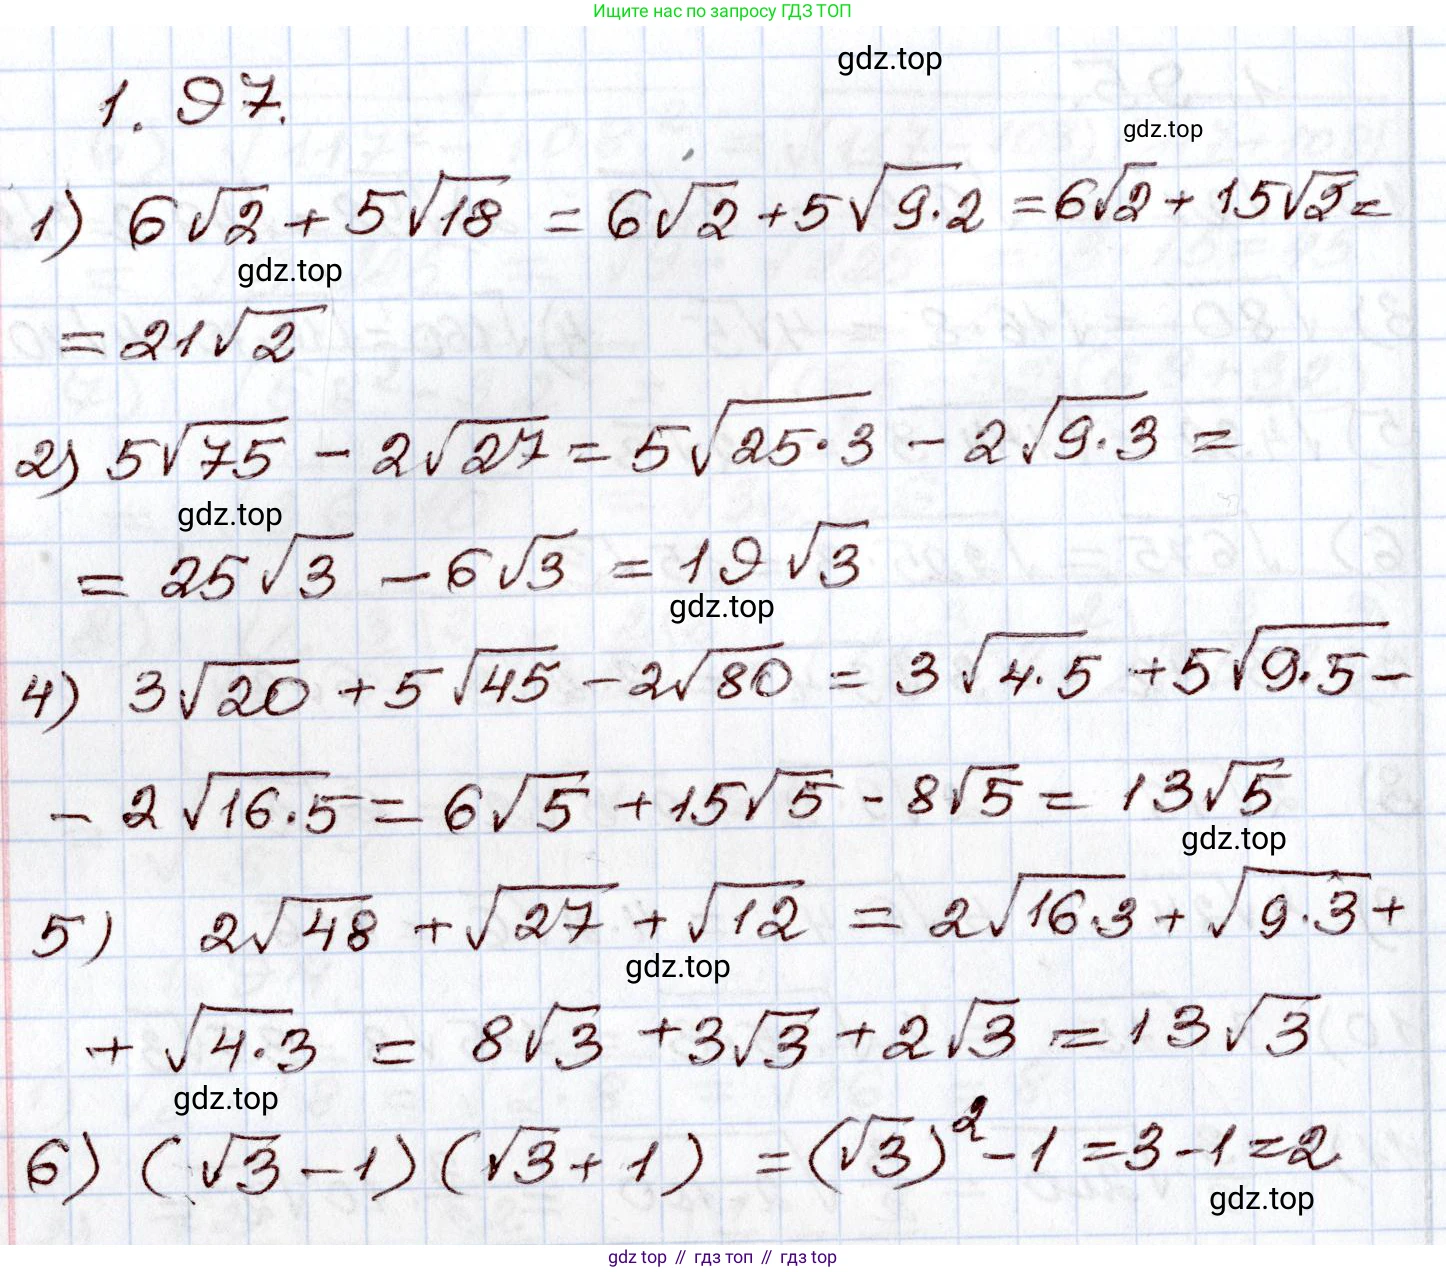 Ищите нас по запросу ГДЗ ТОП
gdz.top
1.97.
gdz.top
1) 6√2 + 5√18 = 6√2 + 5√9·2 = 6√2 + 15√2 =
gdz.top
= 21√2
2) 5√75 - 2√27 = 5√25·3 - 2√9·3 =
gdz.top
= 25√3 - 6√3 = 19√3
gdz.top
4) 3√20 + 5√45 - 2√80 = 3√4·5 + 5√9·5 -
- 2√16·5 = 6√5 + 15√5 - 8√5 = 13√5
gdz.top
5) 2√48 + √27 + √12 = 2√16·3 + √9·3 +
gdz.top
+ √4·3 = 8√3 + 3√3 + 2√3 = 13√3
gdz.top
6) (√3 - 1)(√3 + 1) = (√3)² - 1 = 3 - 1 = 2
gdz.top
gdz top // гдз топ // гдз top